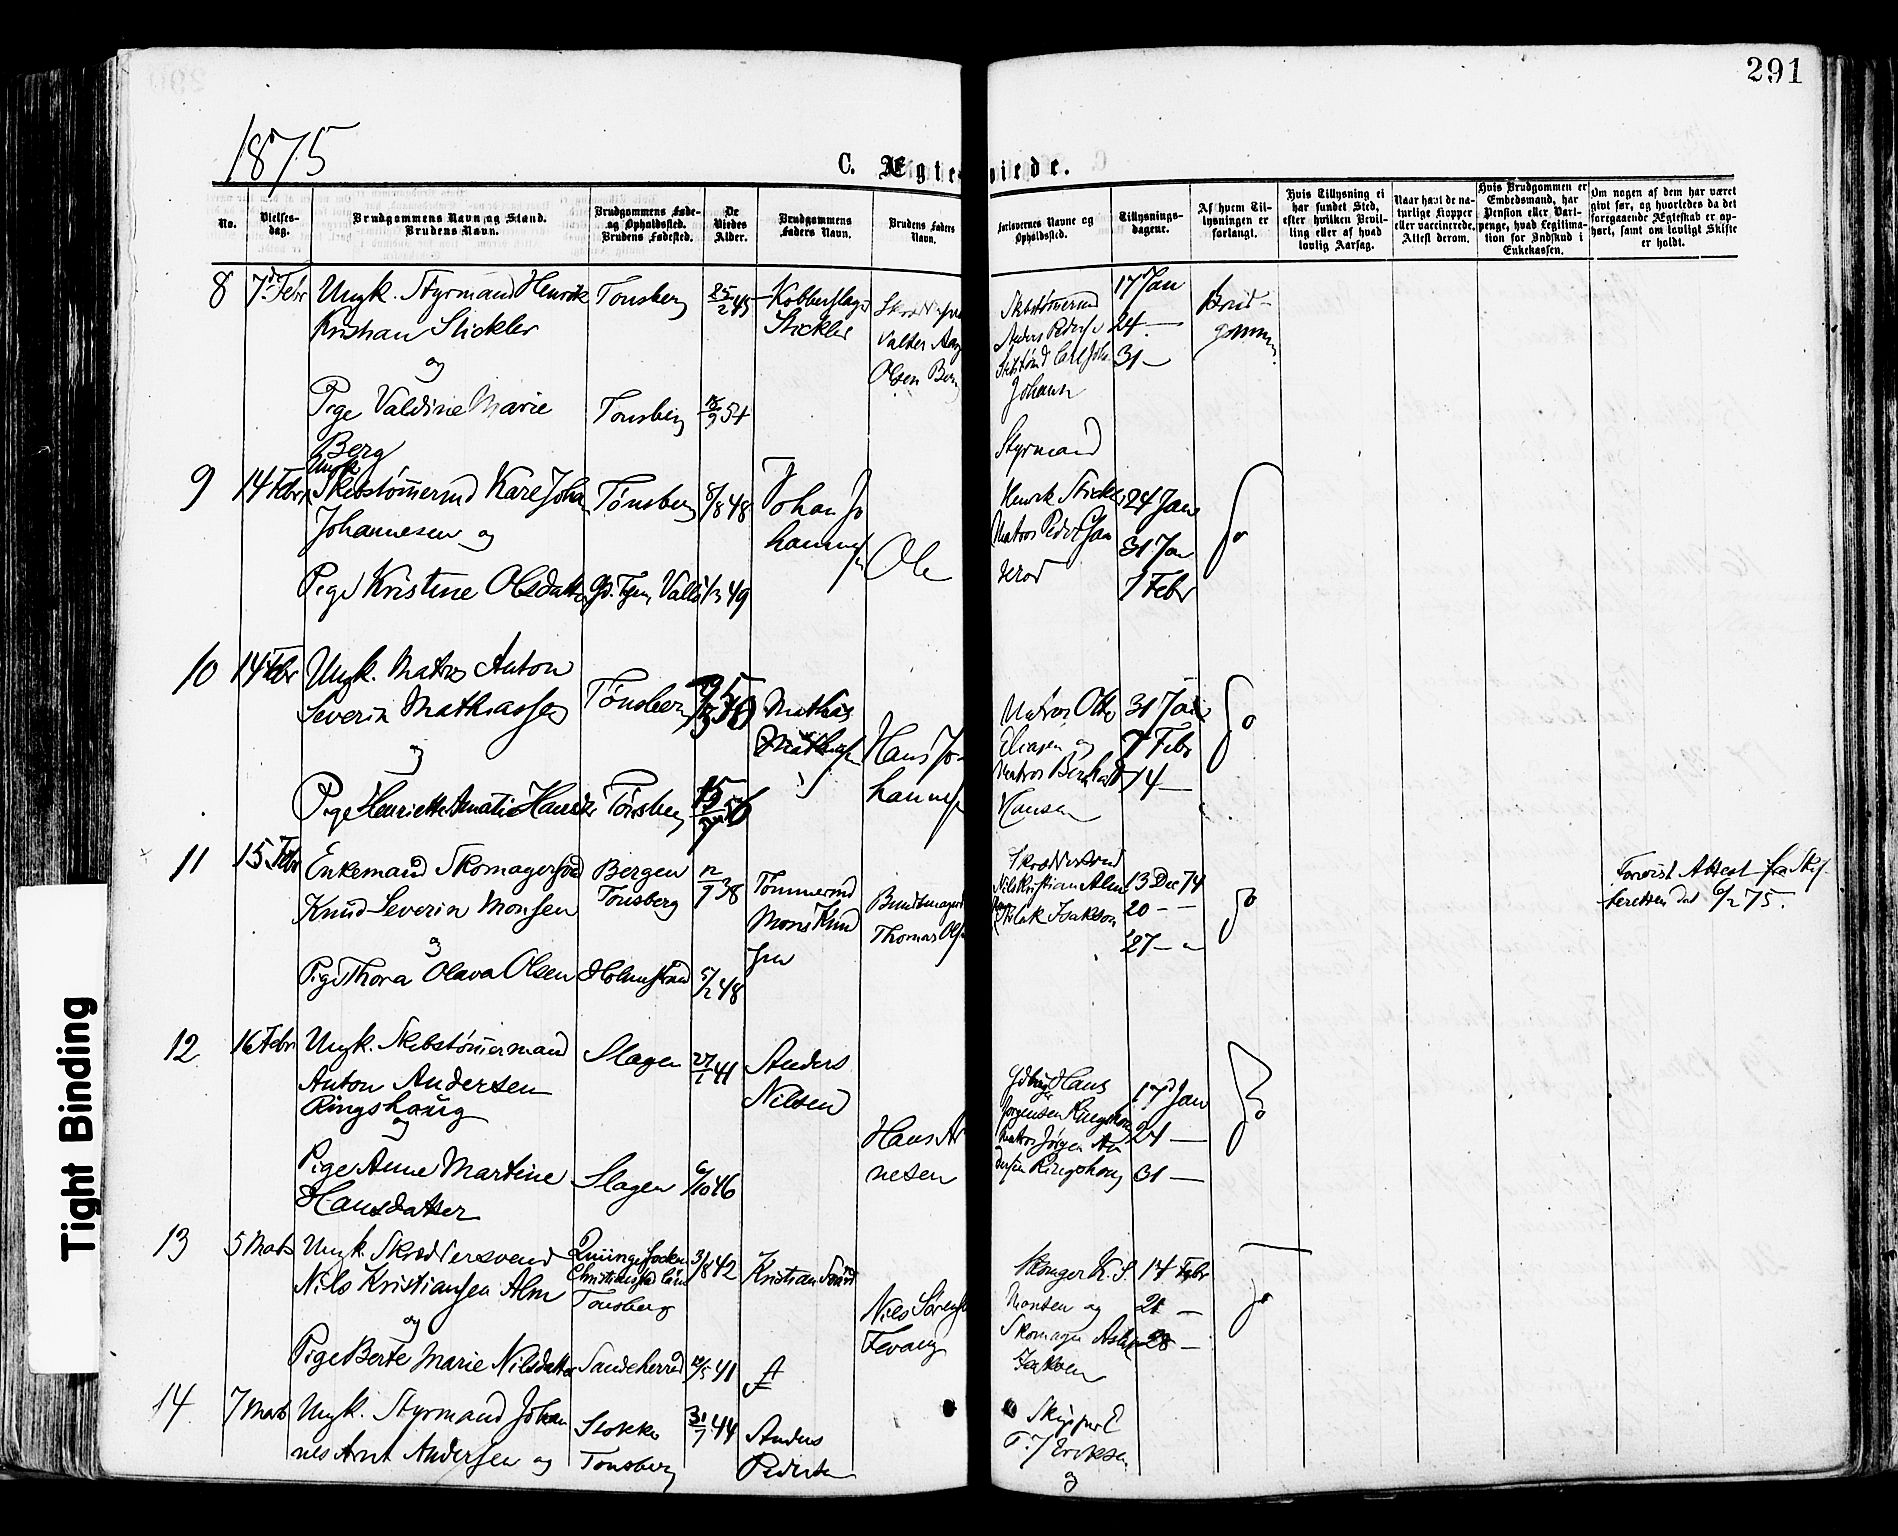 291
1875
C. Ægteviede.
No.
Vielses-
dag.
Brudgommens Navn og Stand.
Brudens Navn.
Brudgommens Føde-
og Opholdssted.
Brudens Fødested.
De
Viedes
Alder.
Brudgommens
Faders Navn.
Brudens Faders
Navn.
Forlovernes Navne og
Opholdssted.
Tillysnings-
dagene.
Af hvem Til-
lysningen er
forlangt.
Hvis Tillysning ei
har fundet Sted,
efter hvilken Bevil-
ling eller af hvad
lovlig Aarsag.
Naar havt de na-
turlige Kopper
eller vaccinerede.
Attest derom.
Hvis Brudgommen er
Embedsmand, har
Pension eller Vart-
penge, hvad Legitima-
tion for Indskud i
Enkekassen.
Om nogen af dem har været
givt før, og hvorledes da det
foregaaende Ægteskab er op-
hørt, samt om lovligt Skifte
er holdt.
8
7de Febr
Ungk. Styrmand Henrik
Kristian Stickler
og
Pige Valdine Marie
Berg
Tonsberg
Tonsberg
25/2 45
18/9 54
Kobberslager
Stickler
Valter Aug
Olsen Berg
Skibstømmermd
Anders Peders
Johans
17 Jan
24 —
31 —
Brud-
gommen
9
14 Febr
Ungk.
Skibstømermd Karl Johan
Johannesen og
Pige Kristine Olsdatter
Tønsberg
Vallø
8/8 48
1/3 49
Johan Jo
hannes
Ole
Styrmand
Henrik Stickler
Matros Peder
24 Jan
31 Jan
7 Febr
Jo
10
14 Febr
Ungk. Matros Anton
Severin Mathiassen
og
Pige Henriette Amalie Hansd
Tønsberg
Tønsberg
Mathias
Mathias
Hans Jo
hannes
Matros Olle
Eliasen og
Matros Bernhard
Hansen
31 Jan
7 Febr
14 —
Jo
11
15 Febr
Enkemand Skomagersvd
Knud Severin Monsen
og
Pige Thora Olava Olsen
Bergen
Tonsberg
Holmestrand
12/9 38
5/2 48
Tommermd
Mons Knud
sen
Bundtmager
Thomas Ols
Skræddersvend
Nils Kristian Alm
Aslak Isakson
13 Dec 74
20 — —
27 — —
Jo
Forevist Attest fra Skif-
teretten dat 6/2 75.
12
16 Febr
Ungk. Skibstømermand
Anton Andersen
Ringshaug
og
Pige Anne Martine
Hansdatter
Slagen
Slagen
27/1 41
6/10 46
Anders
Nilsen
Hans Ar
nesen
Hans
Jorgensen Ringshoug
Matros Jørgen An
dersen Ringshoug
17 Jan
24 —
31 —
Jo
13
5 Marts
Ungk. Skræddersvend
Nils Kristiansen Alm
og
Pige Berte Marie Nilsdatter
Christianstad Län
Tonsberg
Sandeherred
31/8 42
41
Kristian
Nils Sørens
Fevang
Skomager K. S.
Monsen og
Skomager Aslak
Isaksen
14 Febr
21 —
28 —
Jo
14
7 Marts
Ungk. Styrmand Johan
nes Arnt Andersen og
Stokke
Tonsberg
31/7 44
Anders
Pedersen
Skipper E
T. J Eriksen
og
Tight Binding